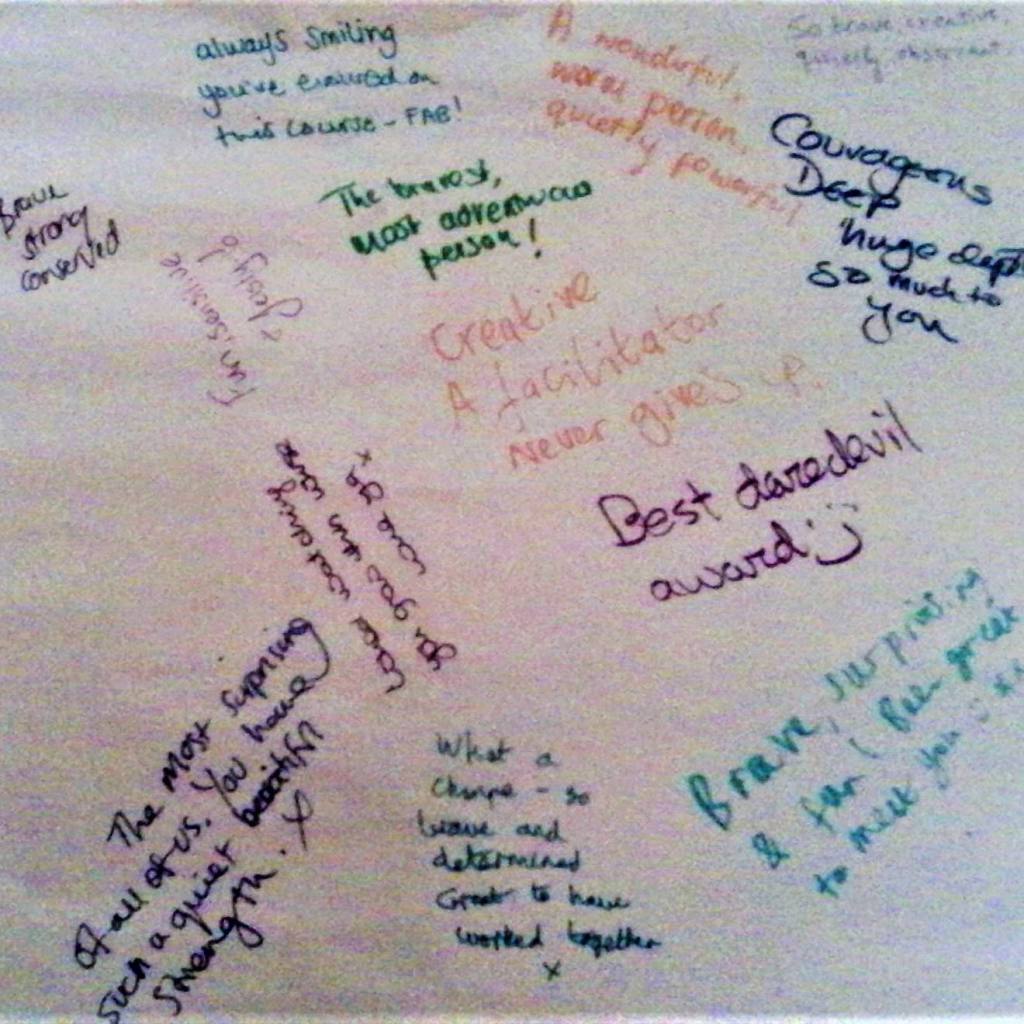 always smiling
you've evolved on
this course - FAB!
A wonderful,
warm person,
quietly powerful
So brave, creative,
quietly observant.
Courageous
Deep
huge depth
so much to
you
Brave
strong
conserved
The bravest,
most adventurous
person!
Fun, sensitive
Creative
A facilitator
Never gives up.
Best daredevil
award :)
watching
you grow
x
The most surprising
of all of us. You have
such a quiet beautiful
strength. X
What a
change - so
brave and
determined
Great to have
worked together
x
Brave, surprising
& fun! Been great
to meet you